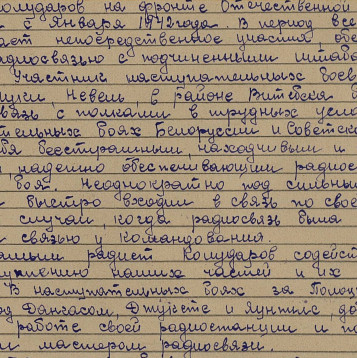 Колударов на фронте Отечественной
с Января 1942 года. В период все
ает непосредственное участие, обе
адиосвязью с подчиненными штаба
Участник наступательных боев
луки, Невель, в районе Витебска
связь с полками в трудных усло
тельных боях Белоруссии и Советск
бя бесстрашным, находчивым и
, надежно обеспечивающим радиос
боя. Неоднократно под сильным
быстро входил в связь по свое
случаи, когда радиосвязь была
связью у командования.
радист Колударов содейст
наших частей и их
В наступательных боях за Полоц
од Двинском, и до
работе своей радиостанции и по
мастером радиосвязи.